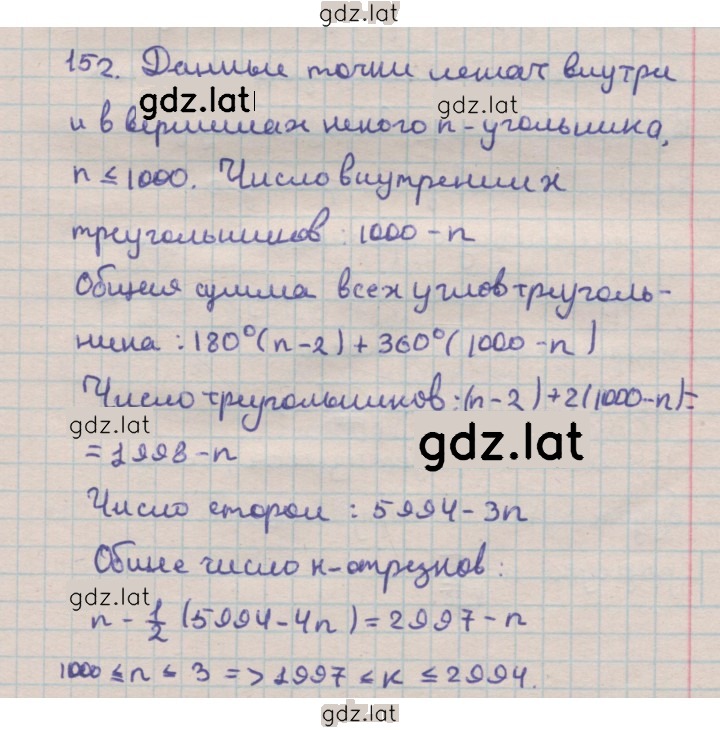 gdz.lat
152. Данные точки лежат внутри
gdz.lat gdz.lat
и в вершинах некого n-угольника,
n ≤ 1000. Число внутренних
треугольников: 1000 - n
Общая сумма всех углов треуголь-
ника: 180°(n-2) + 360°(1000-n)
Число треугольников: (n-2)+2(1000-n)=
gdz.lat gdz.lat
= 1998 - n
Число сторон: 5994 - 3n
Общее число к-отрезков:
gdz.lat
n - 1/2 (5994-4n) = 2997 - n
1000 ≤ n ≤ 3 => 1997 ≤ к ≤ 2994.
gdz.lat